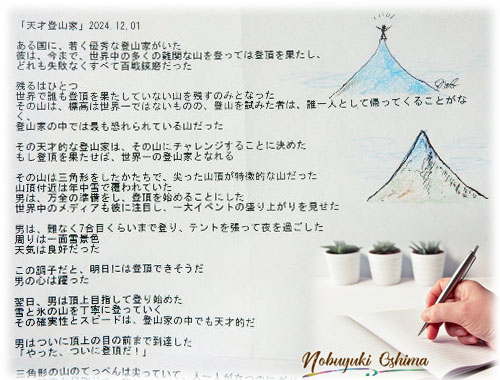 「天才登山家」2024.12.01
ある国に、若く優秀な登山家がいた
彼は、今まで、世界中の多くの難関な山を登っては登頂を果たし、
どれも失敗なくすべて百戦錬磨だった
残るはひとつ
世界で誰も登頂を果たしていない山を残すのみとなった
その山は、標高は世界一ではないものの、登山を試みた者は、誰一人として帰ってくることがな
く、
登山家の中では最も恐れられている山だった
その天才的な登山家は、その山にチャレンジすることに決めた
もし登頂を果たせば、世界一の登山家となれる
その山は三角形をしたかたちで、尖った山頂が特徴的な山だった
山頂付近は年中雪で覆われていた
男は、万全の準備をし、登頂を始めることにした
世界中のメディアも彼に注目し、一大イベントの盛り上がりを見せた
男は、難なく7合目くらいまで登り、テントを張って夜を過ごした
周りは一面雪景色
天気は良好だった
この調子だと、明日には登頂できそうだ
男の心は躍った
翌日、男は頂上目指して登り始めた
雪と氷の山を丁寧に登っていく
その確実性とスピードは、登山家の中でも天才的だ
男はついに頂上の目の前まで到達した
「やった、ついに登頂だ！」
三角形の山のてっぺんは尖っていて、人一人が立つのに
Nobuyuki Oshima